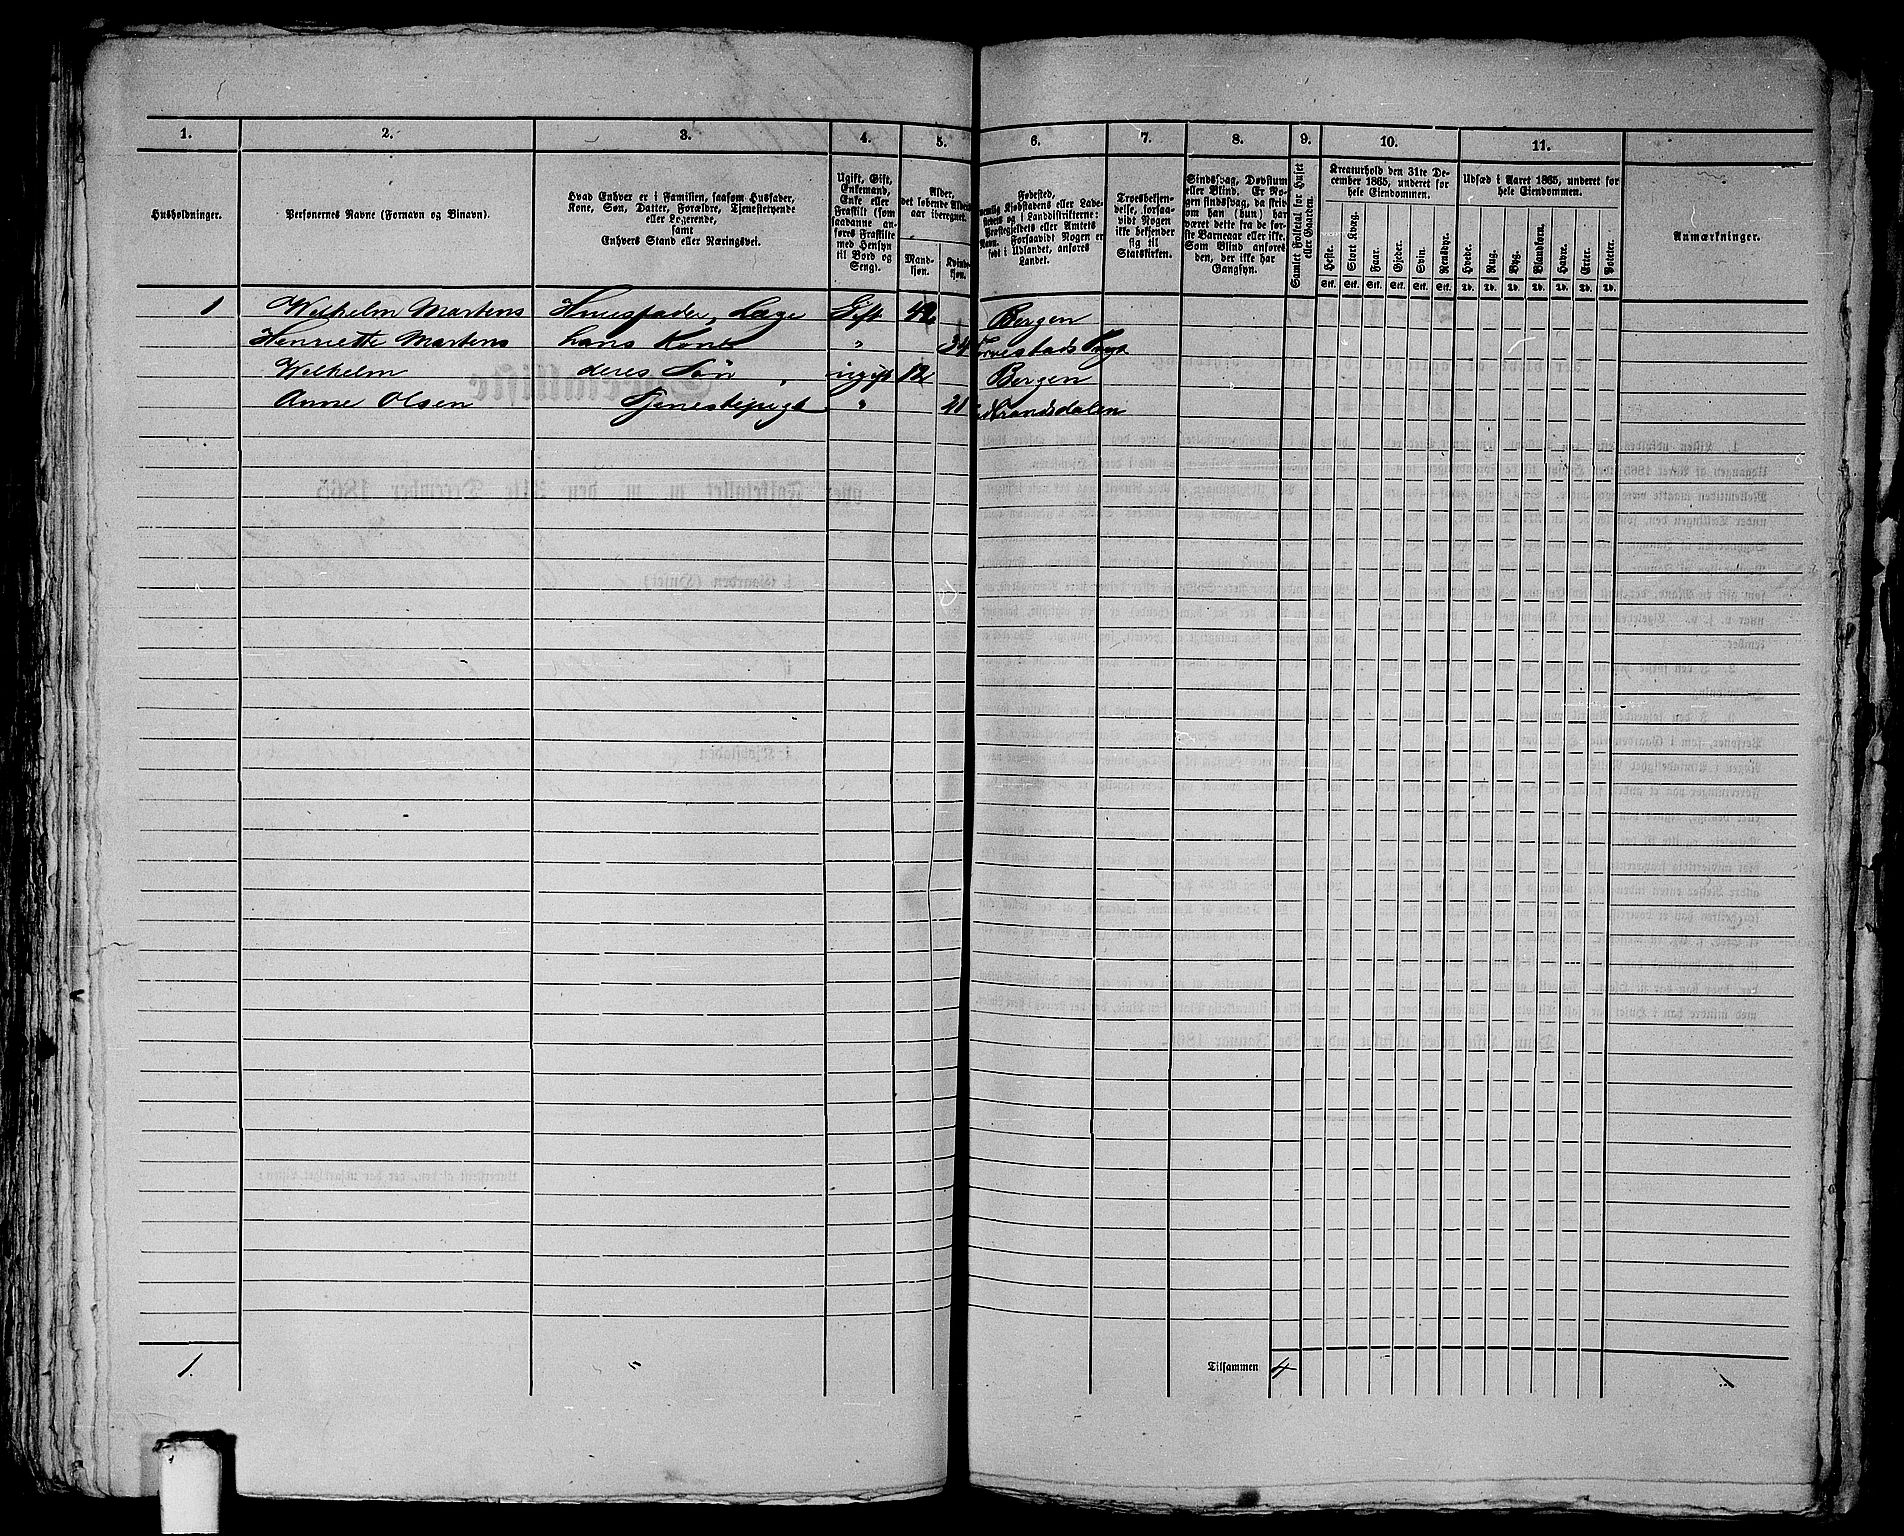 1. 2. 3. 4. 5. 6. 7. 8. 9. 10. 11.
Husholdninger.
Personernes Navne (Fornavn og Binavn).
Hvad Enhver er i Familien, saasom Husfader,
Kone, Søn, Datter, Forældre, Tjenestetyende
eller Logerende,
samt
Enhvers Stand eller Næringsvei.
Ugift, Gift,
Enkemand,
Enke eller
Fraskilt (som
saadanne an-
føres Fraskilte
med Hensyn
til Bord og
Seng).
Alder,
det løbende Alders-
aar iberegnet.
Mand-
kjøn.
Kvinde-
kjøn.
Fødested,
nemlig Kjøbstadens eller Lade-
stedets og i Landdistrikterne:
Præstegjeldets eller Amtets
Navn. Forsaavidt Nogen er
født i Udlandet, anføres
Landet.
Troesbekjen-
delse, forsaa-
vidt Nogen
ikke bekjender
sig til
Statskirken.
Sindssvag, Døvstum
eller Blind. Er No-
gen sindssvag, da skriv
om han (hun) har
været dette fra de før-
ste Barneaar eller ikke.
Som Blind anføres
den, der ikke har
Gangsyn.
Samlet Folketal for Huset
eller Gaarden.
Kreaturhold den 31te De-
cember 1865, underet for
hele Eiendommen.
Heste. Stort Kvæg. Faar. Gjeder. Svin. Rensdyr.
Stk. Stk. Stk. Stk. Stk. Stk.
Udsæd i Aaret 1865, underet for
hele Eiendommen.
Hvede. Rug. Byg. Blandkorn. Havre. Erter. Poteter.
Td. Td. Td. Td. Td. Td. Td.
Anmærkninger.
1 Wilhelm Martens Huusfader, Læge Gift 42 Bergen
Henriette Martens hans Kone " 34 Torvestads Prgd
Wilhelm deres Søn ugift 12 Bergen
Anne Olsen Tjenestepige " 21
1. Tilsammen 4